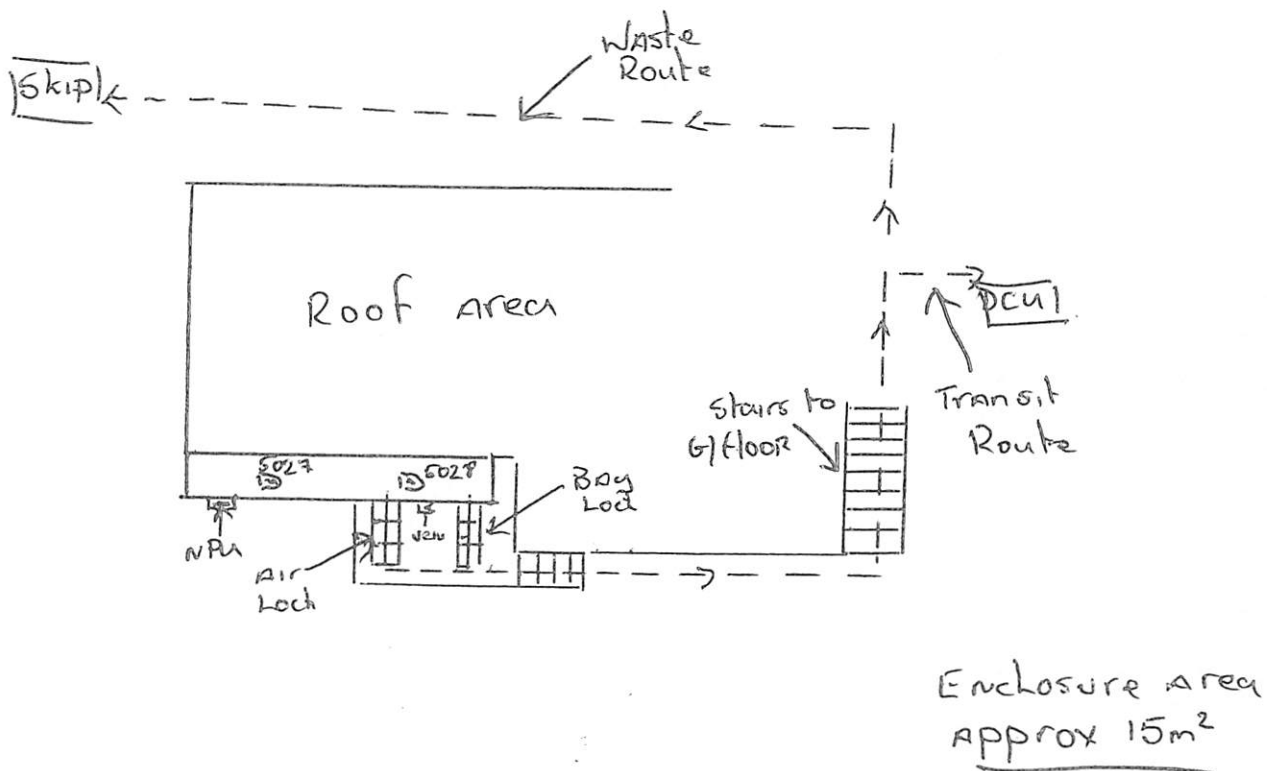 Waste
Route
Skip
Roof Area
DCU1
Transit
Route
Stairs to
G/Floor
5027
5028
Bag
Lock
NPU
Air
Lock
Enclosure Area
Approx 15m²